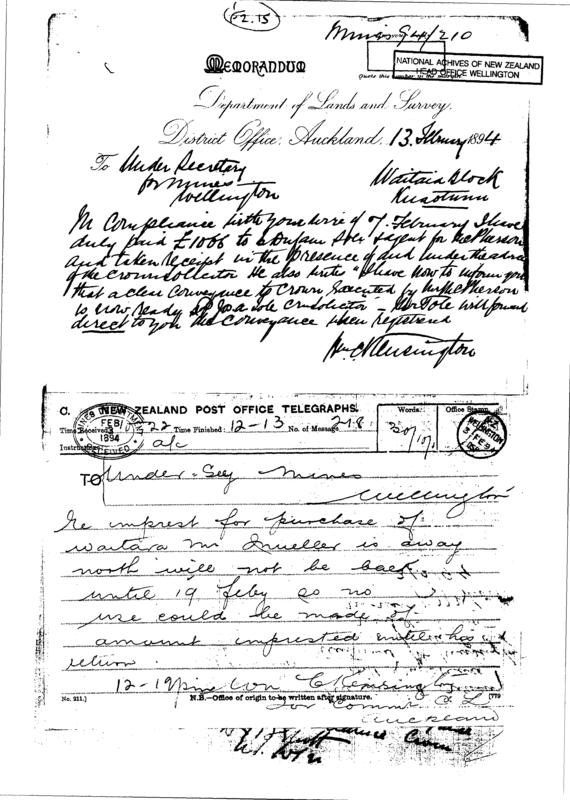 F2.15
Mines 94/210
NATIONAL ACHIVES OF NEW ZEALAND
HEAD OFFICE WELLINGTON
MEMORANDUM
Quote this number in the
Department of Lands and Survey,
District Office, Auckland, 13 February 1894
To Under Secretary
for Mines
Wellington
Waitaia Block
Kuaotunu
In Compliance with your wire of 7. February I have
duly paid £1066 to agent for McPherson
and taken receipt in the presence of and under the advice
of the crown solicitor He also writes "I have now to inform you
that a clear Conveyance to Crown executed by McPherson
is now ready Tole will forward
direct to you the Conveyance when registered
Kensington
C. NEW ZEALAND POST OFFICE TELEGRAPHS.
MINES DEPARTMENT
FEB
1894
RECEIVED
Time Received: 22 Time Finished: 12-13 No. of Message 218
Words: 30/
Office Stamp.
WELLINGTON
FE 94
Instructions: a/c
TO Under-Secy Mines
Wellington
Re imprest for purchase of
waitara Mr Mueller is away
north will not be back
until 19 feby so no
use could be made of
amount imprested until his
return
12-19pm Wm C Kensington
for Commr C L
Auckland
No. 211.] N.B.—Office of origin to be written after signature. [779
Crown